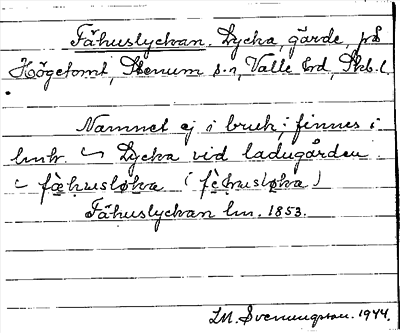 Fähuslyckan. Lycka, gärde, på
Högetomt, Stenum s:n, Valle hd, Skb. l.
Namnet ej i bruk; finnes i
lmhr. ~ Lycka vid ladugården.
~ fæ̀husløka (fèhusløka)
Fähuslyckan lm. 1853.
I.M. Svenungsson. 1944.